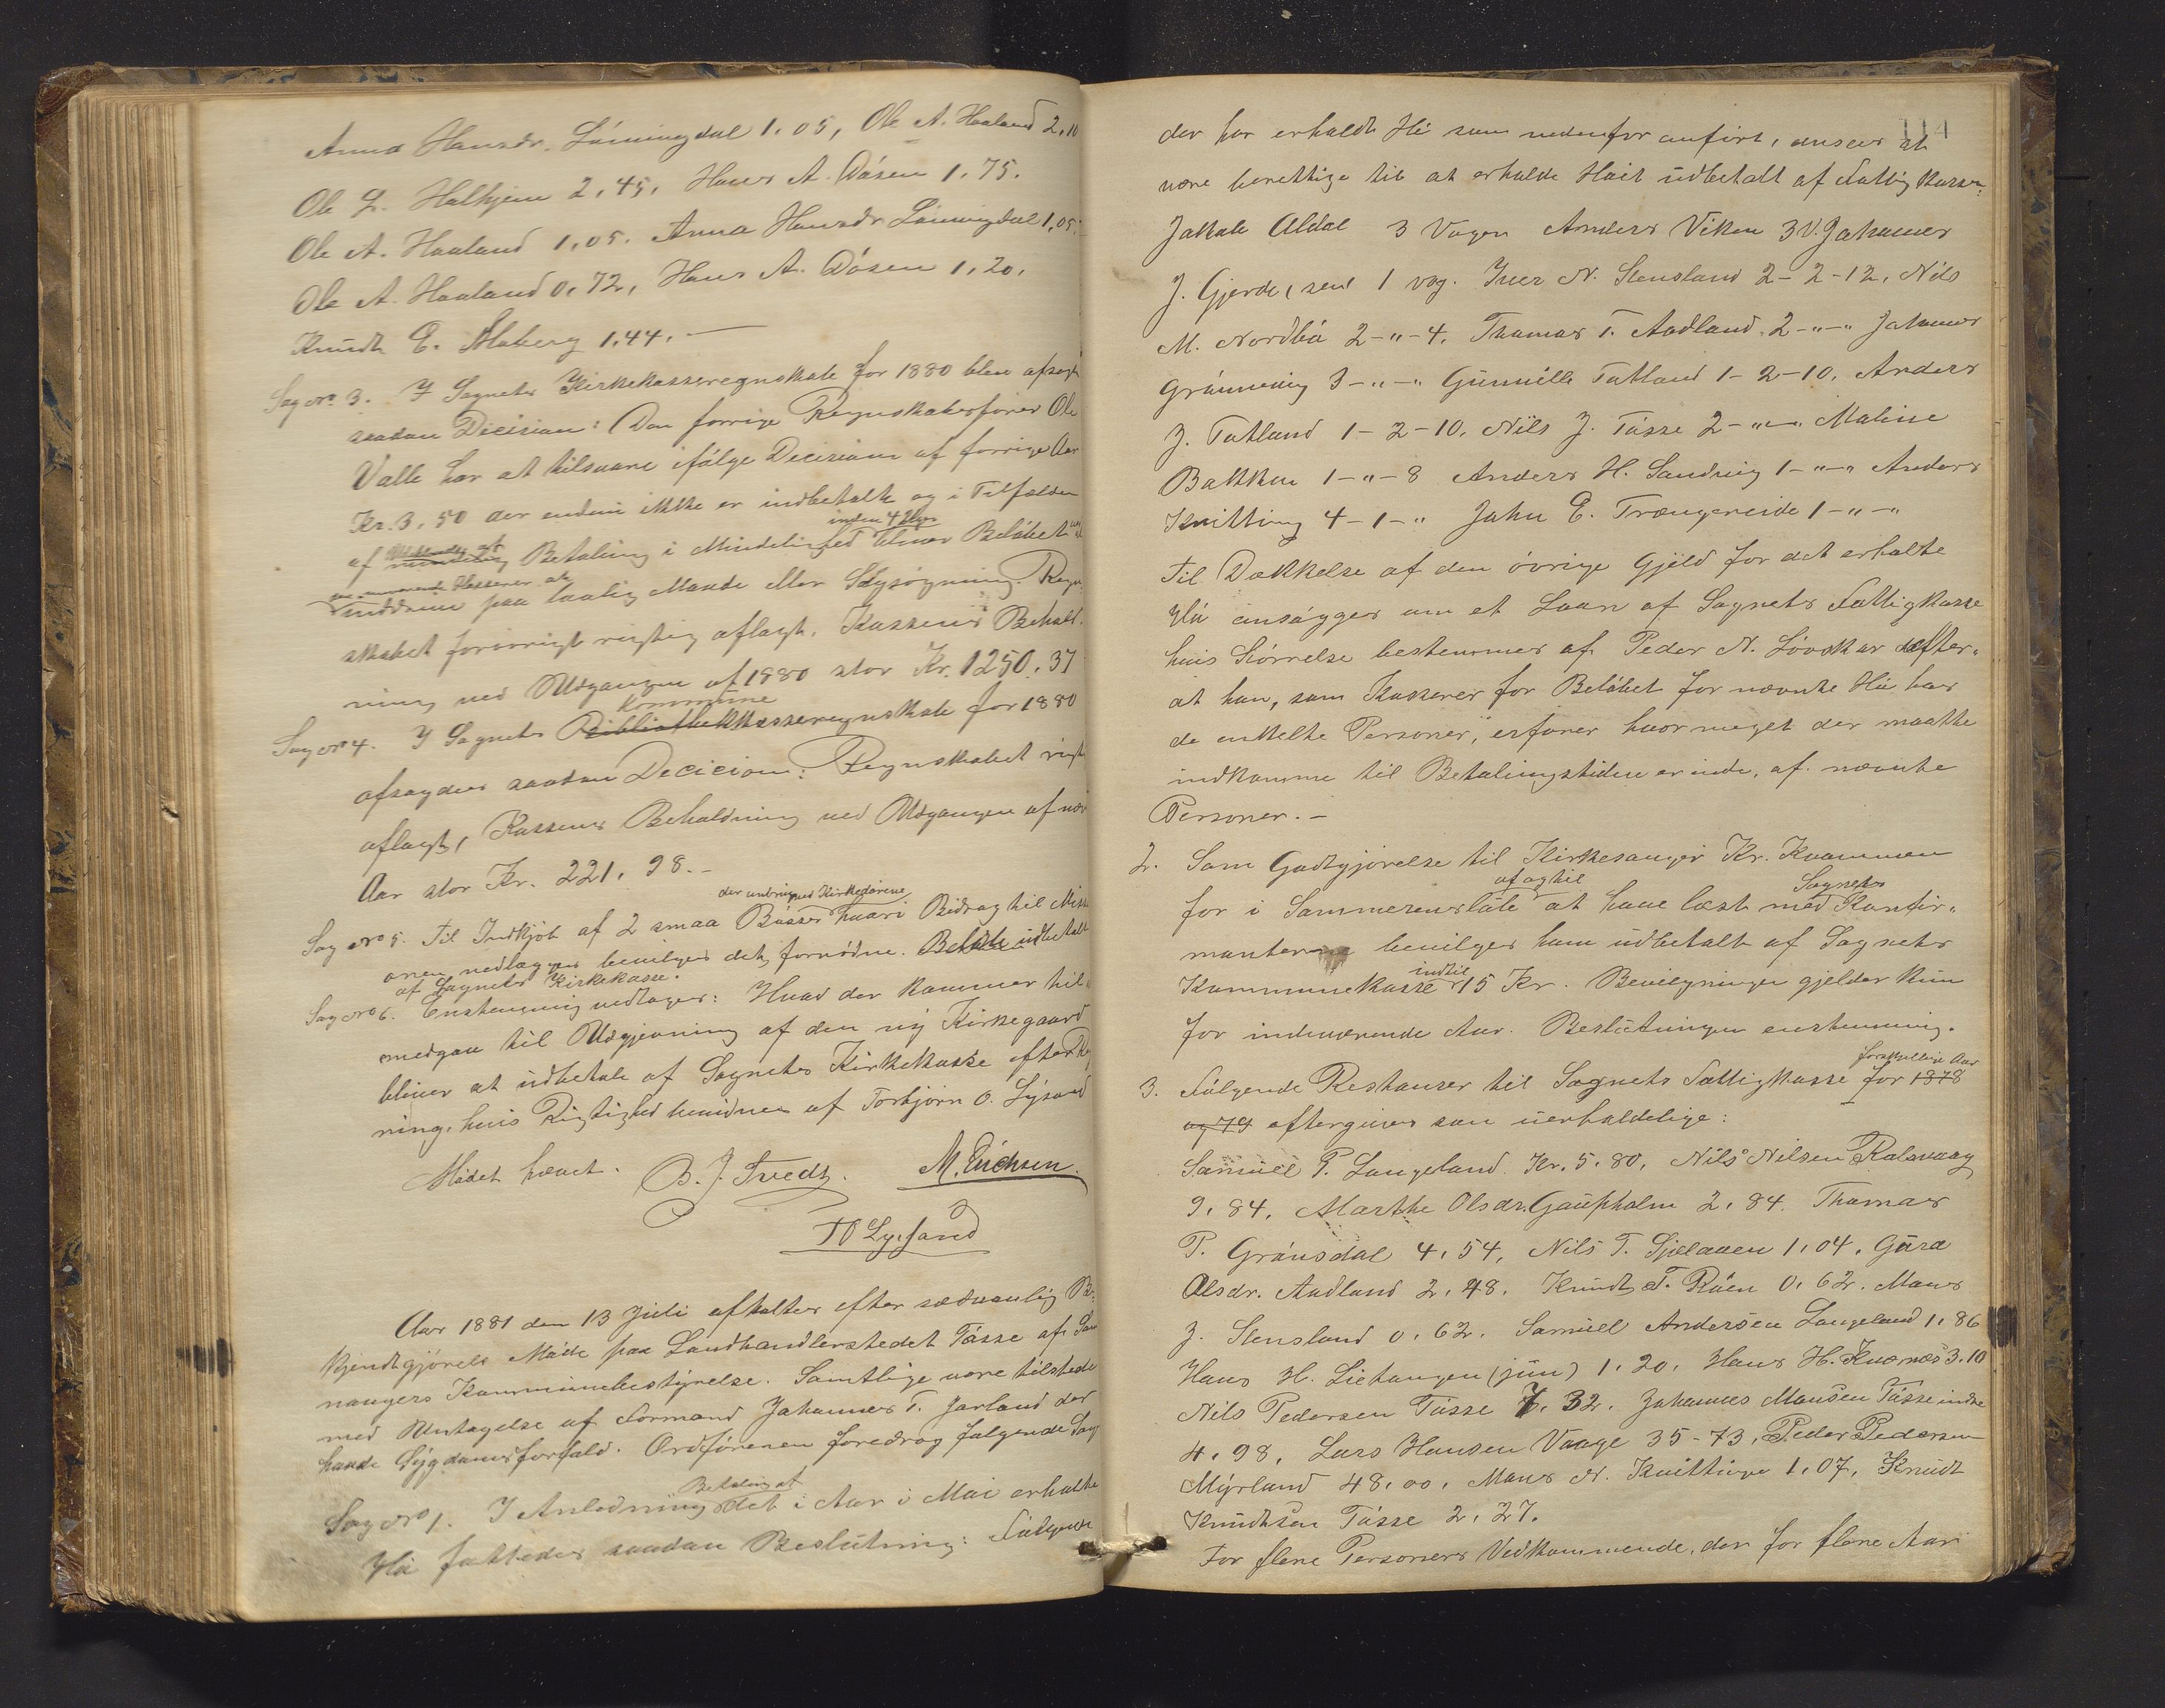 Anna Hansdr. Lønningdal 1.05, Ole A. Haaland 2,10
Ole L. Halhjem 2,45, Hans A. Døsen 1.75.
Ole A. Haaland 1,05. Anna Hansdr Lønningdal 1,05.
Ole A. Haaland 0,72, Hans A. Døsen 1,20,
Knudt E. 1.44.
Sag No 3. I Sognets Kirkekasseregnskab for 1880 blev afsagt
saadan Dicision: Den forrige Regnskabsfører Ole
Valle har at tilsvare ifølge Dicision af forrige Aar
Kr. 3,50 der endnu ikke er indbetalt og i Tilfælde
inden 4 Uger
af Betaling i Mindelighed Beløbet
nuværende Kasserer at
inddrive paa lovlig Maade eller Søgsøgning. Regn-
skabet forøvrigt rigtig aflagt, Kassens Behold-
ning ved Udgangen af 1880 stor Kr. 1250.37
Kommune
Sag No 4. I Sognets Bibliothekkasseregnskab for 1880
afsagdes saadan Decicion: Regnskabet rigt
aflagt, Kassens Beholdning ved Udgangen af næv
Aar stor Kr. 221,98.-
der anbringes ved Kirkedørene
Sag No 5. Til Indkjøb af 2 smaa Bøsser hvori Bidrag til Missi
onen nedlægges bevilges det fornødne. Beløb udbetalt
af Sognets Kirkekasse.
Sag No 6. Enstemmig vedtoges: Hvad der kommer til
medgaa til Udgjevning af den ny Kirkegaard
bliver at udbetale af Sognets Kirkekasse efter Reg
ning, hvis Rigtighed bevidnes af Torbjørn O. Lysand
Mødet hævet. B. J. Tvedt. M. Erichsen.
T O Lysand
Aar 1881 den 13 Juli afholtes efter sædvanlig Be-
kjendtgjørels Møde paa Landhandlerstedet Tøsse af Sam
nangers Kommunebestyrelse. Samtlige vare tilstede
med Undtagelse af Formand Johannes T. Jarland der
havde Sygdomsforfald. Ordføreren foredrog følgende Sag
Betaling af
Sag No 1. I Anledning det i Aar i Mai erholdte
Hø fattedes saadan Beslutning: Følgende
114
der har erholdt Hø som nedenfor anført, ansees at
være berettige til at erholde Høit udbetalt af Fattigkassen:
Jakob Aldal 3 Voger Anders Viken 3 V. Johannes
J. Gjerde, sen 1 vog. Iver N. Stensland 2-2-12, Nils
M. Nordbø 2-"-4, Thomas T. Aadland 2-"-" Johannes
Grønnening 3-"-" Gunnille Totland 1-2-10, Anders
J. Totland 1-2-10, Nils J. Tøsse 2-"-" Maline
Bakken 1-"-8 Anders H. Sandvig 1-"-" Anders
Knitting 4-1-" John E. Trængereide 1-"-"
Til Dækkelse af den øvrige Gjeld for det erholte
Hø ansøgges om et Laan af Sognets Fattigkasse
hvis Størrelse bestemmes af Peder N. Løvskar efter-
at han, som Kasserer for Beløbet for nævnte Hø hos
de enkelte Personer, erfarer hvor meget der maatte
indkomme til Betalingstiden er inde, af nævnte
Personer.-
2. Som Godtgjørelse til Kirkesanger Kr. Kvammen
af og til Sognets
for i Sommerens løb at have læst med Konfir-
manterne bevilges ham udbetalt af Sognets
indtil
Kommunekasse 15 Kr. Bevilgningen gjelder kun
for indeværende Aar. Beslutningen enstemmig.
forskjellige Aar
3. Følgende Restanser til Sognets Fattigkasse for 1878
og 79 eftergives som uerholdelige:
Samuel P. Langeland Kr. 5.80, Nils Nilsen Rolsvaag
9,84, Marthe Olsdr. Gaupholm 2,84. Thomas
P. Grønsdal 4,54, Nils T. Sjelaaen 1,04, Gura
Olsdr. Aadland 2,48. Knudt T. Røen 0,62. Mons
J. Stensland 0,62. Samuel Andersen Langeland 1,86
Hans H. Lietangen (jun) 1,20, Hans H. Kvernes 3.10
Nils Pedersen Tøsse 7,32, Johannes Monsen Tøsse indre
4,98, Lars Hansen Vaage 35-73, Peder Pedersen
Myrland 48,00, Mons N. Knittinge 1,07, Knudt
Knudtsen Tøsse 2,27.
For flere Personers Vedkommende, der for flere Aar